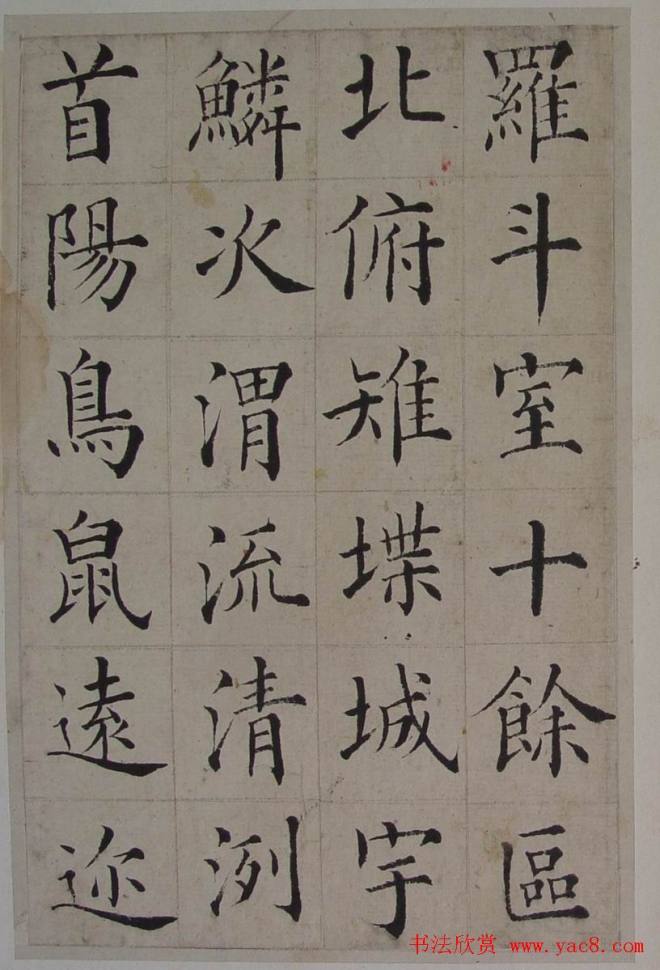 羅斗室十餘區
北俯雉堞城宇
鱗次渭流清洌
首陽鳥鼠遠迩
书法欣赏 www.yac8.com